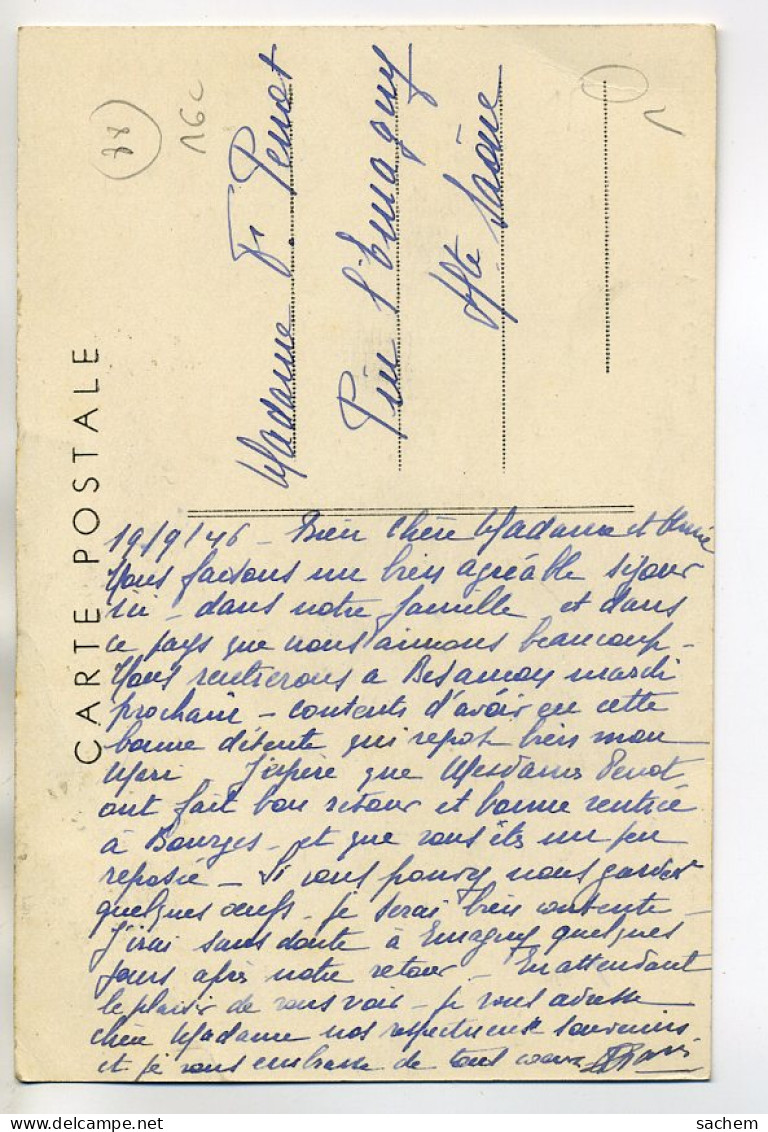 CARTE POSTALE
78
16c
1
Madame F. Penot
Pin l'Emagny
Hte Saône
19/9/46 - Bien chère Madame et
Nous faisons un bien agréable séjour
ici - dans notre famille et dans
ce pays que nous aimons beaucoup -
Nous rentrerons à Besançon mardi
prochain - contents d'avoir eu cette
bonne détente qui repose bien mon
Mari J'espère que Mesdames Penot
ont fait bon retour et bonne rentrée
à Bourges - et que vous êtes un peu
reposée - Si vous pouvez nous garder
quelques œufs - je serai bien contente -
J'irai sans doute à Emagny quelques
jours après notre retour - En attendant
le plaisir de vous voir - je vous adresse
chère Madame nos respectueux souvenirs
et je vous embrasse de tout cœur
sachem